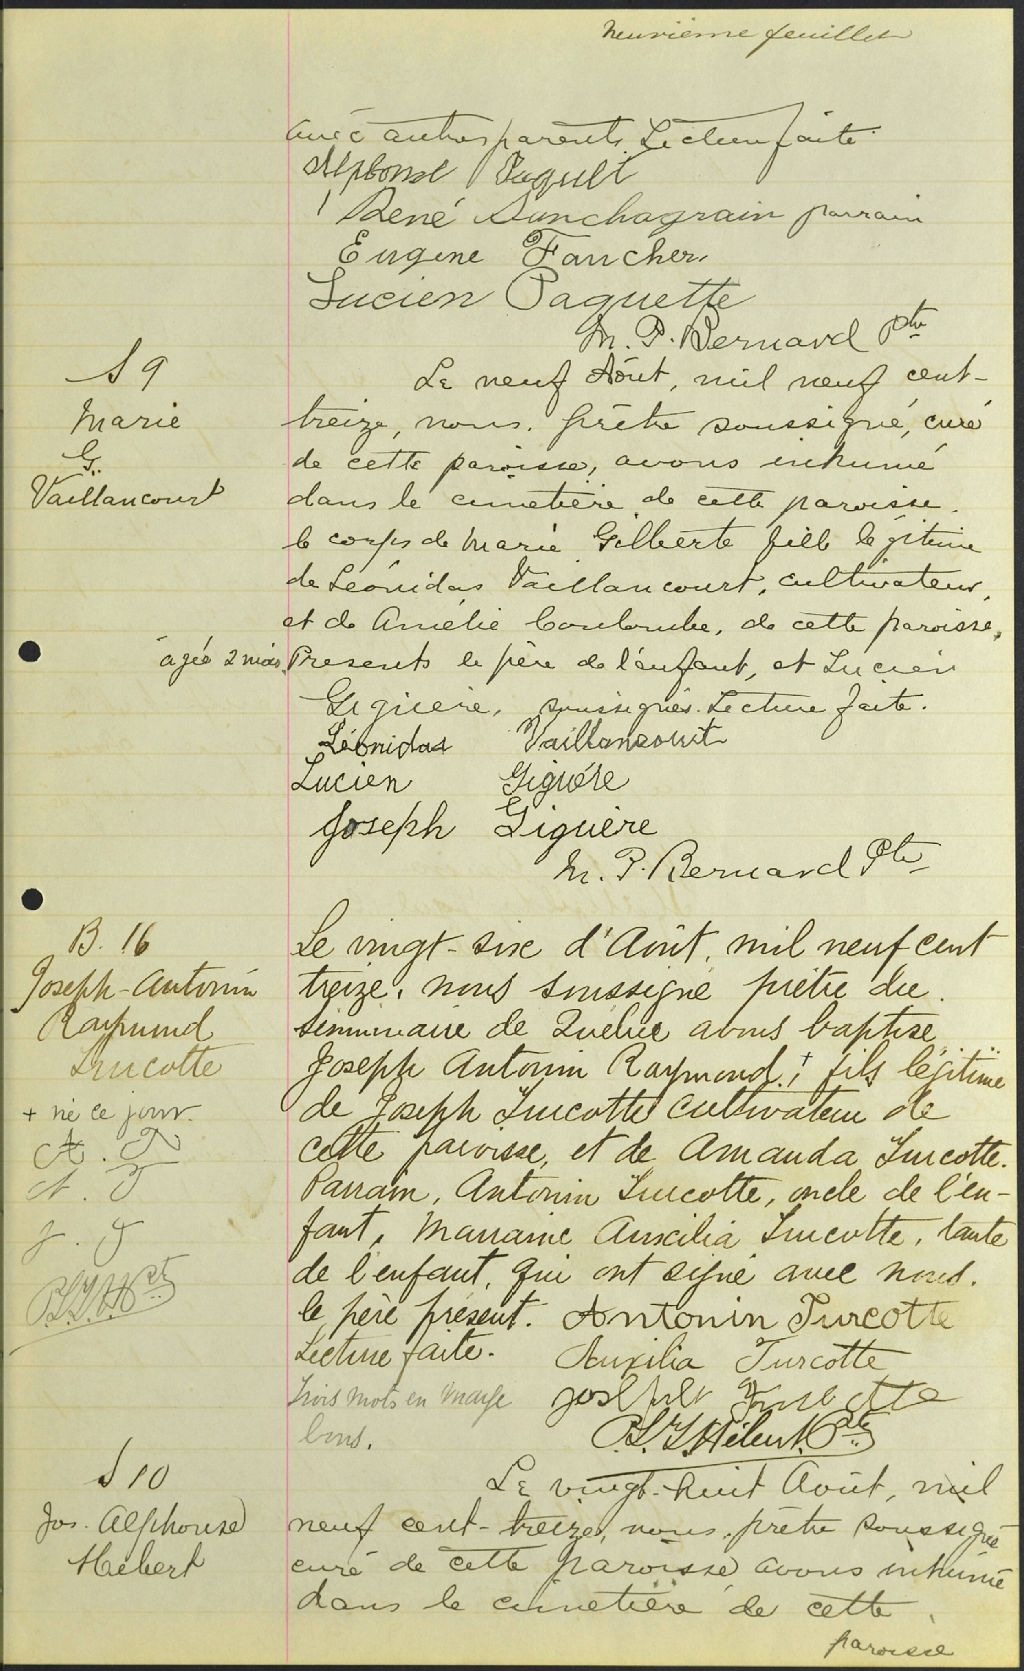 neuvième feuillet
avec autres parents. Lecture faite.
Alphonse Paquet
René Sanschagrain parrain
Eugene Faucher
Lucien Paquette
M. P. Bernard Ptre
S 9
Marie
G.
Vaillancourt
Le neuf Août, mil neuf cent-
treize, nous, prêtre soussigné, curé
de cette paroisse, avons inhumé
dans le cimetière de cette paroisse
le corps de Marie Gilberte fille légitime
de Léonidas Vaillancourt, cultivateur,
et de Amélie Coulombe, de cette paroisse,
agée 2 mois. Presents le père de l'enfant, et Lucien
Giguère, soussignés. Lecture faite.
Léonidas Vaillancourt
Lucien Giguére
Joseph Giguère
M. P. Bernard Ptre
B. 16
Joseph-Antonin
Raymond
Turcotte
+ né ce jour
A. T.
A. T
J. T
P.L.J.H. Ptre
Le vingt-six d'Août, mil neuf cent
treize, nous soussigné prêtre du
séminaire de Québec avons baptisé
Joseph Antonin Raymond,+ fils légitime
de Joseph Turcotte cultivateur de
cette paroisse, et de Amanda Turcotte.
Parrain, Antonin Turcotte, oncle de l'en-
fant, Marraine Auxilia Turcotte, tante
de l'enfant, qui ont signé avec nous.
le père présent. Antonin Turcotte
Lecture faite. Auxilia Turcotte
Trois mots en marge Joseph Turcotte
bons. Hébert, Ptre
S 10
Jos. Alphonse
Hébert
Le vingt-huit Août, mil
neuf cent-treize, nous, prêtre soussigné
curé de cette paroisse avons inhumé
dans le cimetière de cette
paroisse